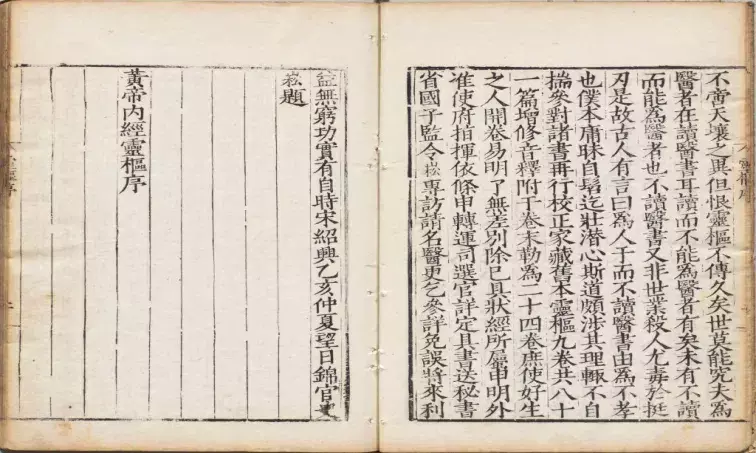 不啻天壤之異但恨靈樞不傳久矣世莫能究夫爲
醫者在讀醫書耳讀而不能爲醫者有矣未有不讀
而能爲醫者也不讀醫書又非世業殺人尤毒於挺
刃是故古人有言曰爲人子而不讀醫書由爲不孝
也僕本庸昧自髫迄壯潜心斯道頗涉其理輙不自
揣參對諸書再行校正家藏舊本靈樞九卷共八十
一篇增修音釋附于卷末勒爲二十四卷庶使好生
之人開卷易明了無差別除已具狀經所屬申明外
准使府指揮依條申轉運司選官詳定具書送秘書
省國子監令崧專訪請名醫更乞參詳免誤將來利
益無窮功實有自時宋紹興乙亥仲夏望日錦官史
崧題
黃帝內經靈樞序